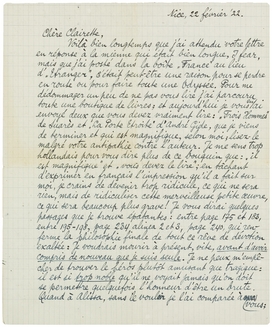 Nice, 22 février '22.
Chère Clairette,
Voilà bien longtemps que j'ai attendu votre lettre
en réponse à la mienne qui était bien longue, I fear,
mais que j'ai posté dans la boîte "France" au lieu
d'"Etranger", c'était peut-être une raison pour se perdre
en route ou pour faire toute une Odyssée. Pour me
dédommager un peu de ne pas vous lire j'ai parcouru
toute une boutique de livres; et aujourd'hui je vous ai
envoyé deux que vous devez vraiment lire: "Trois Hommes"
de Suarès et "La Porte Etroite" d'André Gide, que je viens
de terminer et qui est magnifique, selon moi; lisez-le
malgré votre antipathie contre l'auteur. Je me sens trop
hollandais pour vous dire plus de ce bouquin que: il
est magnifique et vous devez le lire; en tâchant
d'exprimer en français l'impression qu'il a fait sur
moi, je crains de devenir trop ridicule, ce qui ne sera
rien, mais de ridiculiser cette merveilleuse petite œuvre,
ce qui sera beaucoup plus grave! Je vous dirai quelques
passages que je trouve épatantes: entre page 175 et 183,
entre 195-198, page 234 alinea 2 et 3, page 240, qui ren-
ferme la philosophie finale de tout ce rêve de dévotion
exaltée: Je voudrais mourir à présent, vite, avant d'avoir
compris de nouveau que je suis seule. Je ne peux m'empê-
cher de trouver le héros plutôt amusant que tragique:
il est si trop noble qu'il ne voyait jamais l'on doit
se permettre quelquefois l'honneur d'être un brute.
Quand à Alissa, sans le vouloir je l'ai comparée à
vous: